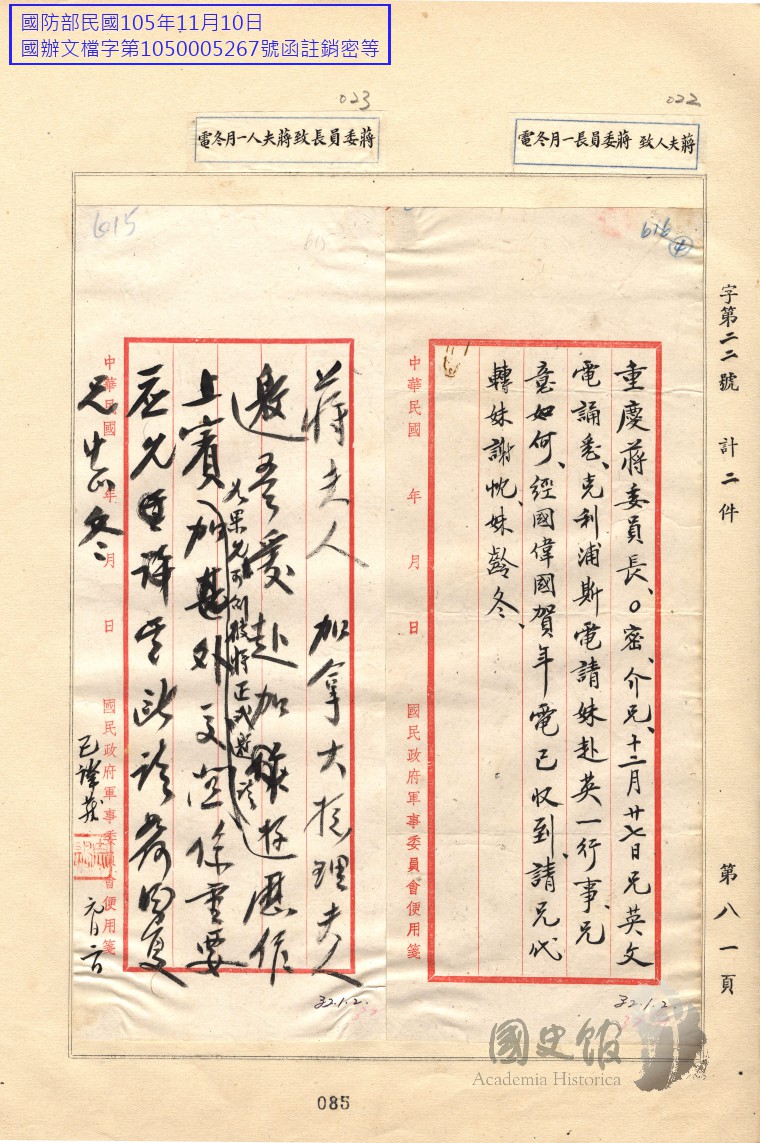 國防部民國105年11月10日
國辦文檔字第1050005267號函註銷密等
022
蔣夫人致蔣委員長一月冬電
023
蔣委員長致蔣夫人一月冬電
字第二二號 計二件 第八一頁
616
4
重慶蔣委員長、○密、介兄、十二月廿七日兄英文
電誦悉、克利浦斯電請妹赴英一行事、兄
意如何、經國偉國賀年電已收到、請兄代
轉妹謝忱、妹齡冬、
中華民國 年 月 日 國民政府軍事委員會便用箋
32.1.2.
615
蔣夫人 加拿大總理夫人
邀吾愛赴加 遊歷作
如果允 將正式邀
上賓 加 外交 重要
應允 許
兄中正冬
中華民國 年 月 日 國民政府軍事委員會便用箋
已譯發
元月二日
32.1.2.
國史館
Academia Historica
085